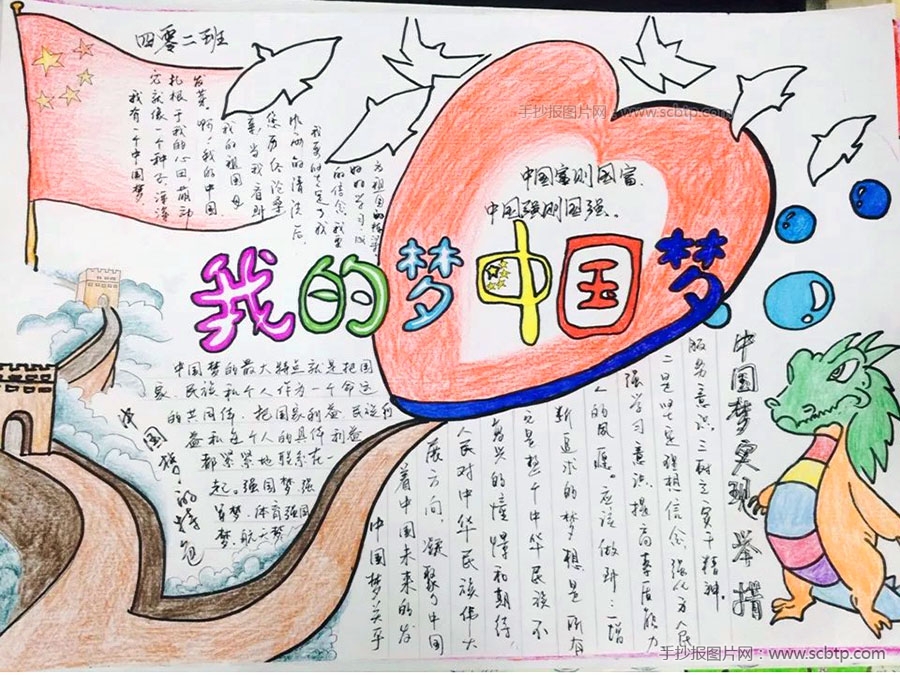 四零二班
我有一个中国梦
它就像一个种子，深深
扎根于我的心田，萌动
发芽。啊，我的中国
我的祖国母
亲，当我看到
您历经沧桑
的清洗后，
我要的坚定了我
的信念。我要
好好学习，以
为祖国的
手抄报图片网：www.scbtp.com
中国富则国富，
中国强则国强。
我的梦中国梦
中国梦的最大特点就是把国
家、民族和个人作为一个命运
的共同体，把国家利益、民族利
益和每个人的具体利益
都紧紧地联系在一
起。强国梦强
军梦、体育强国
梦、航天梦
中国梦的特色
中国梦关乎
着中国未来的发
展方向，凝聚了中国
人民对中华民族伟大
复兴的憧憬和期待
它是整个中华民族不
断追求的梦想是所有
人的夙愿。应该做到：一增
强学习意识，提高素质能力
二是坚定理想信念，强化为人民
服务意识，三树立实干精神。
中国梦实现举措
手抄报图片网：www.scbtp.com